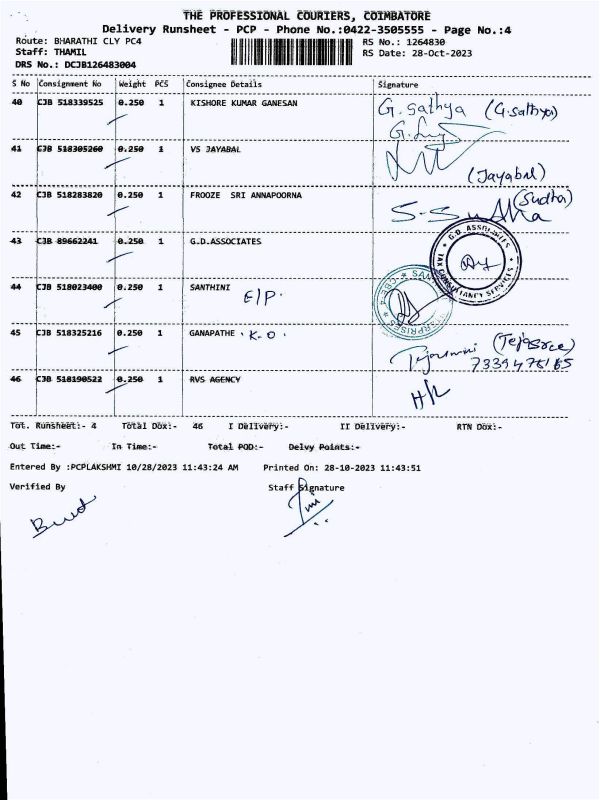 THE PROFESSIONAL COURIERS, COIMBATORE
Delivery Runsheet - PCP - Phone No.:0422-3505555 - Page No.:4
Route: BHARATHI CLY PC4 RS No.: 1264830
Staff: THAMIL RS Date: 28-Oct-2023
DRS No.: DCJB126483004
S No Consignment No Weight PCS Consignee Details Signature
40 CJB 518339525 0.250 1 KISHORE KUMAR GANESAN G. Sathya (G.sathya)
41 CJB 518305260 0.250 1 VS JAYABAL (Jayabal)
42 CJB 518283820 0.250 1 FROOZE SRI ANNAPOORNA S.Sudha (Sudha)
43 CJB 89662241 0.250 1 G.D.ASSOCIATES G.D. ASSOCIATES TAX CONSULTANCY SERVICES
44 CJB 518023400 0.250 1 SANTHINI E/P.
45 CJB 518325216 0.250 1 GANAPATHE . K.O.
46 CJB 518190522 0.250 1 RVS AGENCY H/R
Tot. Runsheet:- 4 Total Dox:- 46 I Delivery:- II Delivery:- RTN Dox:-
Out Time:- In Time:- Total POD:- Delvy Points:-
Entered By :PCPLAKSHMI 10/28/2023 11:43:24 AM Printed On: 28-10-2023 11:43:51
Verified By Staff Signature